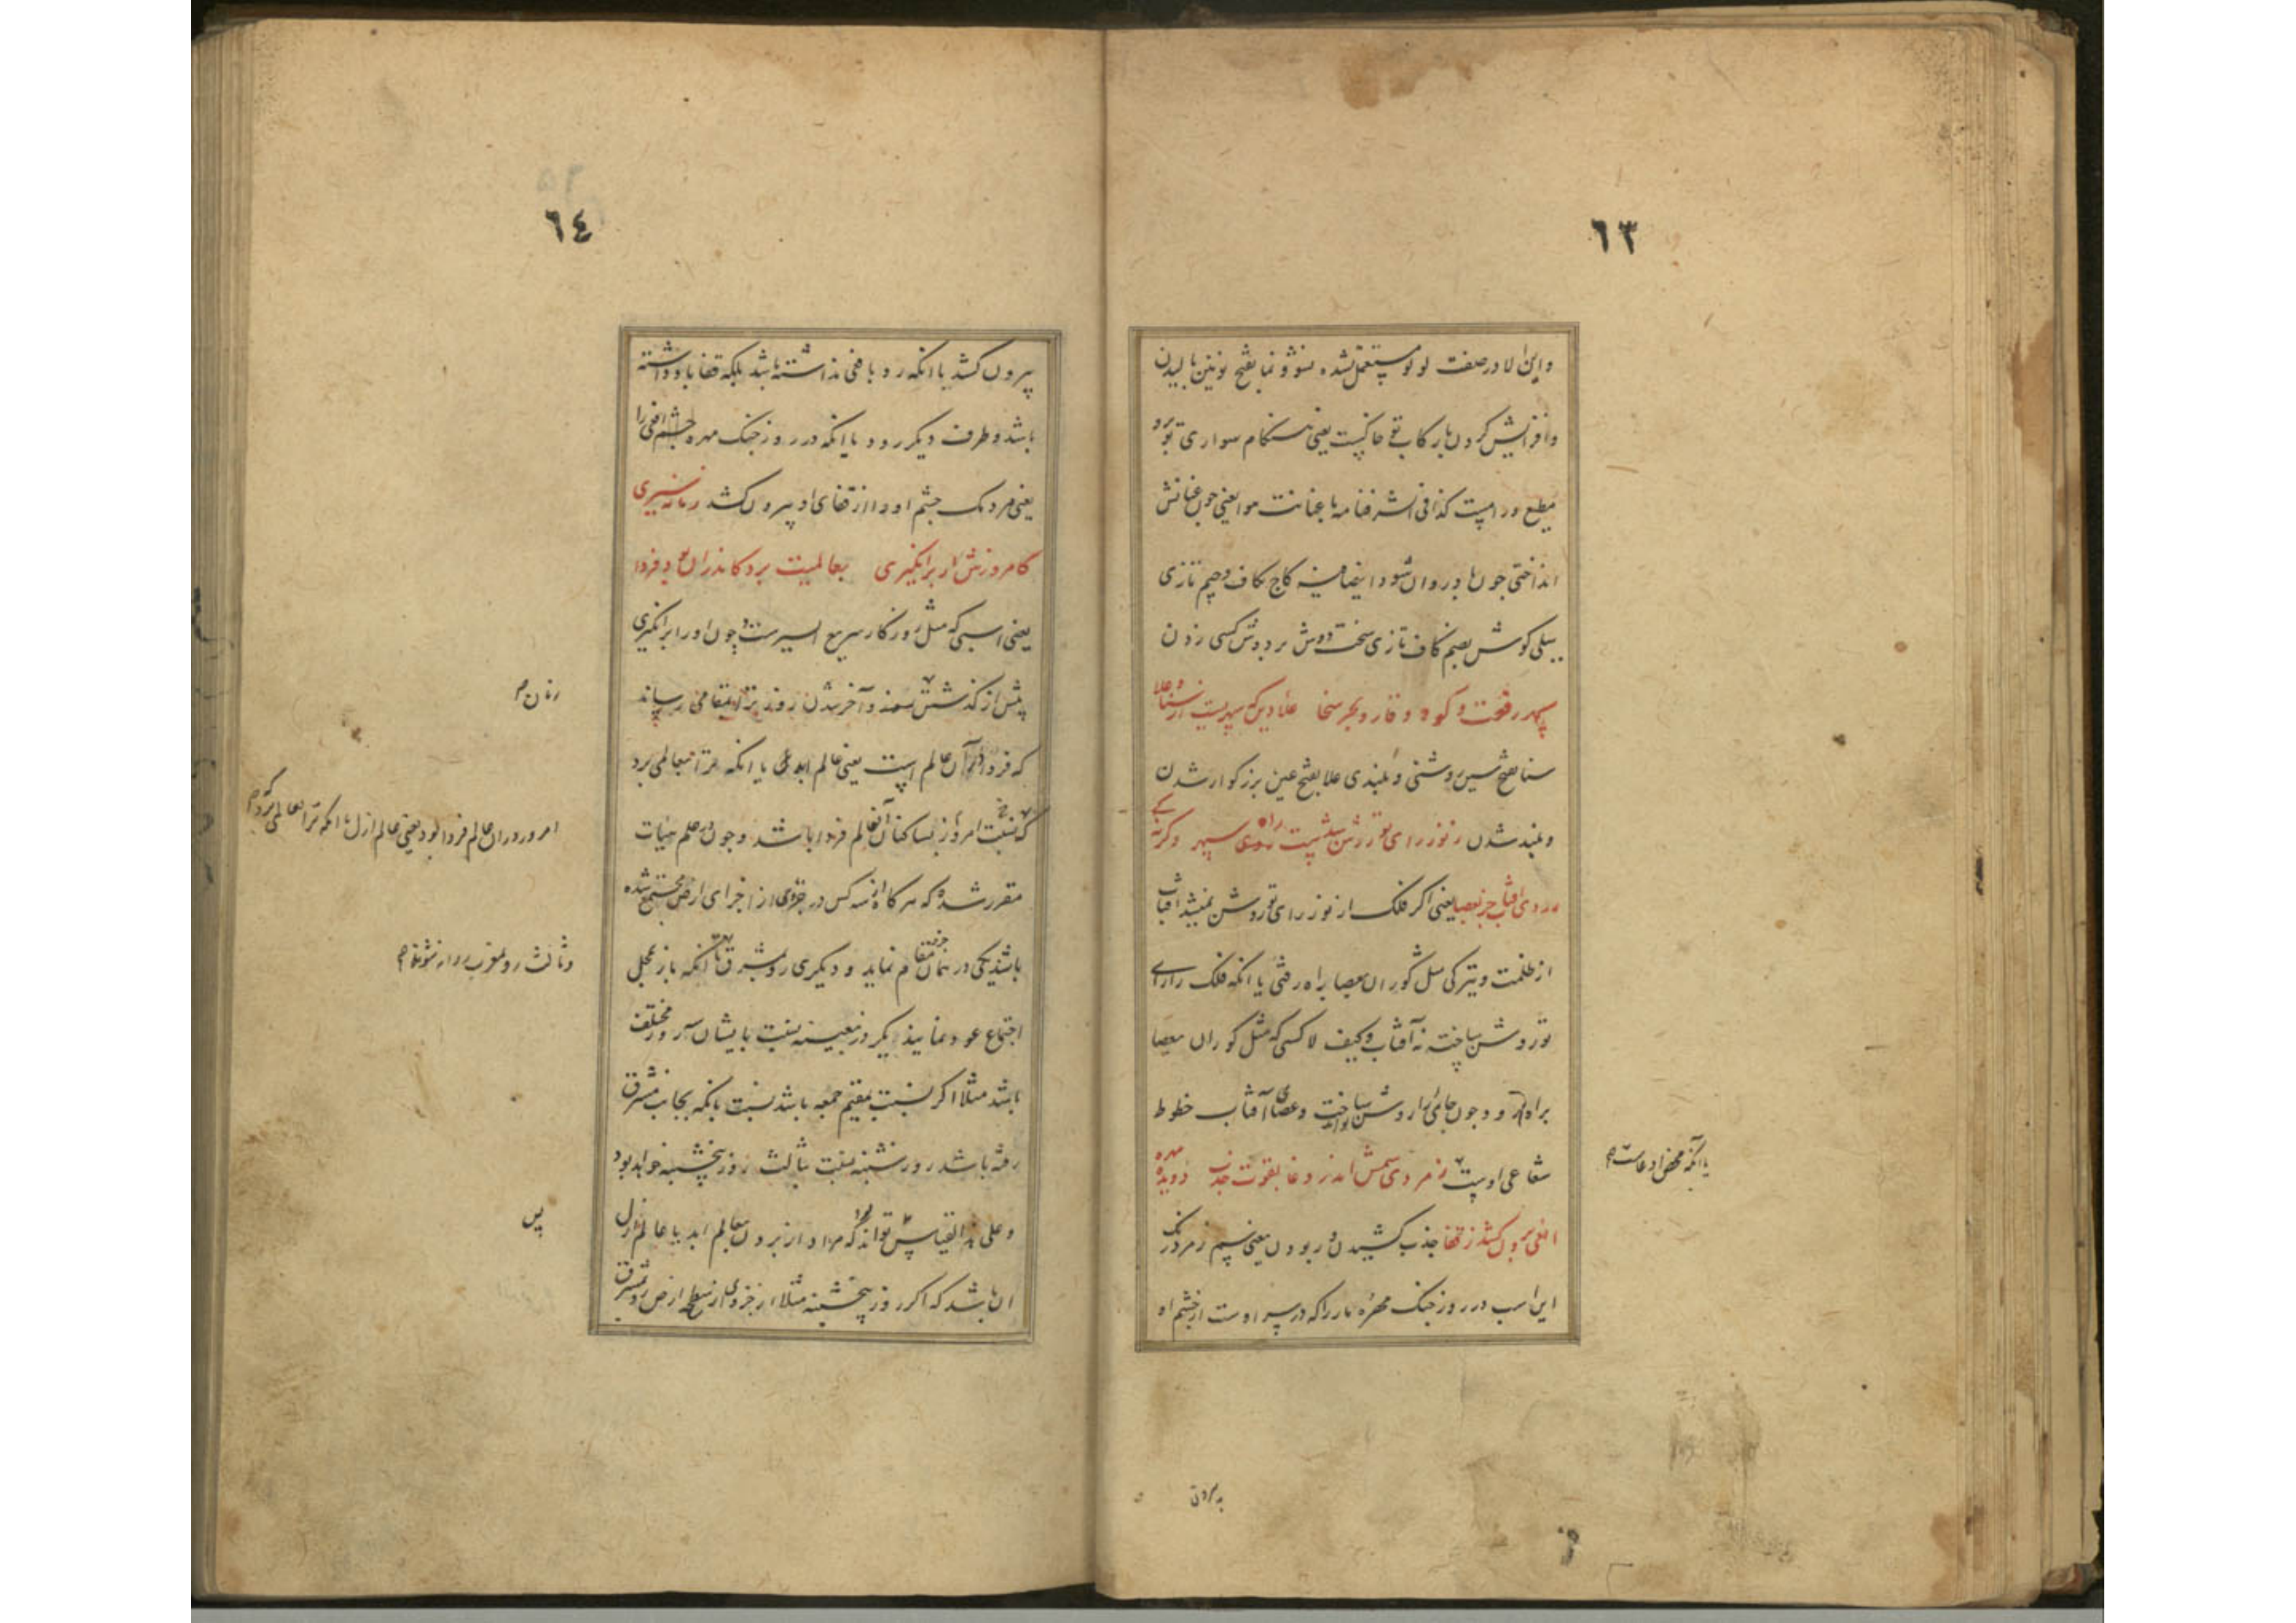 ٦٣
واین لا در صفت لولو مستعمل شده نشو و نما بفتح نونین بالیدن
وافزایش کردن بارکاب تو خاکیست یعنی هنکام سواری تو
مطیع ورامست کذا فی شرفنامه با عنانت هوا یعنی چون عنانش
انداختی چون باد روان شود کاج بکاف وجیم تازی
سیلی کوش بضم کاف تازی سخت دوش بر دوش کسی زدن
سپهر رفعت و کوه وقار و بحر سخا علاء دین که سپهریست از سنا و علا
سنا بفتح سین روشنی و بلندی علا بفتح عین بزرکوار شدن
وبلند شدن ز نور رای تو روشن شدست راه سپهر وکرنه کی
رود آفتاب جز بعصا یعنی اکر فلک از نور رای تو روشن نمیشد آفتاب
از ظلمت وتیرکی مثل کوران بعصا براه رفتی یا انکه فلک را رای
تو روشن ساخته نه آفتاب وکیف لا کسی که مثل کوران بعصا
براه رود چون جائی را روشن تواند ساخت وعصای آفتاب خطوط
شعاعی اوست زمردی سمش اندر وغا بقوت جذب ز دیده مهره
افعی برون کشد ز قفا جذب کشیدن و ربودن یعنی سم زمرد رنک
این اسب در روز جنک مهره مار را که در سر اوست از چشم او
یا آنکه محض ادعاست
٦٤
بیرون کشد یا انکه رو با فعی نداشته باشد بلکه قفا باو داشته
باشد وطرف دیکر رود یا انکه در روز جنک مهره چشم افعی را
یعنی مردمک چشم او را از قفای او بیرون کشد زمانه سیری
کامروزش ار برانکیزی بعالمیت برد کاندران بود فردا
یعنی اسبی که مثل روزکار سریع السیرست وچون او را برانکیزی
پیش از کذشتن وآخر شدن روز ترا بمقامی رساند
که فردا در آن عالم است یعنی عالم ابد یا انکه ترا بعالمی برد
که نسبت امروز بساکنان آنعالم فردا باشد وچون در علم هیات
مقرر شده که هرکاه سه کس در جزوی از اجزای ارض مجتمع شده
باشند یکی در همان مقام نماید و دیکری رو بمشرق تا آنکه باز بمحل
اجتماع عود نمایند یکروز بعینه نسبت بایشان سه روز مختلف
باشد مثلا اکر نسبت بمقیم جمعه باشد نسبت بانکه بجانب مشرق
رفته باشد روز شنبه نسبت بثالث روز پنجشنبه خواهد بود
وعلی هذا القیاس تواند بود که مراد از بردن بعالم ابد یا عالم ازل
ان باشد که اکر روز پنجشنبه مثلا از جزوی از سطح ارض رو بمشرق
امروز دران عالم فردا بود یعنی عالم ازل یا انکه ترا بعالمی برد که
وثالث رو بمغرب روانه شوند
پس